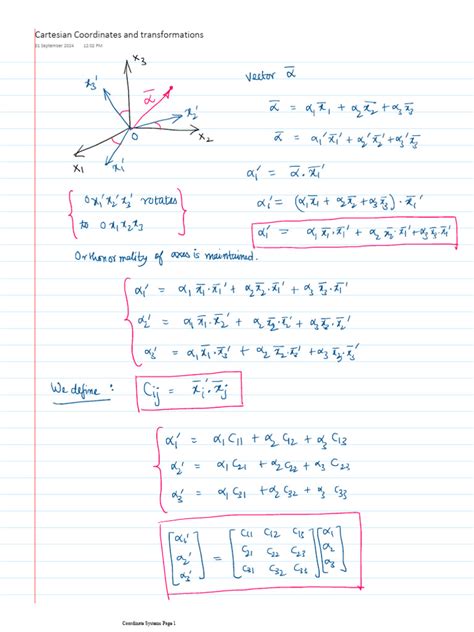 Cartesian Coordinates and transformations
01 September 2024 12:02 PM
x₃
x₃'
ᾱ
x₂'
O
x₂
x₁
x₁'
vector ᾱ
ᾱ = α₁x̄₁ + α₂x̄₂ + α₃x̄₃
ᾱ = α₁'x̄₁' + α₂'x̄₂' + α₃'x̄₃'
α₁' = ᾱ·x̄₁'
α₁' = (α₁x̄₁ + α₂x̄₂ + α₃x̄₃)·x̄₁'
α₁' = α₁x̄₁·x̄₁' + α₂x̄₂·x̄₁' + α₃x̄₃·x̄₁'
O x₁'x₂'x₃' rotates
to O x₁x₂x₃
Orthonormality of axes is maintained.
α₁' = α₁x̄₁·x̄₁' + α₂x̄₂·x̄₁' + α₃x̄₃·x̄₁'
α₂' = α₁x̄₁·x̄₂' + α₂x̄₂·x̄₂' + α₃x̄₃·x̄₂'
α₃' = α₁x̄₁·x̄₃' + α₂x̄₂·x̄₃' + α₃x̄₃·x̄₃'
We define : Cij = x̄i'·x̄j
α₁' = α₁C₁₁ + α₂C₁₂ + α₃C₁₃
α₂' = α₁C₂₁ + α₂C₂₂ + α₃C₂₃
α₃' = α₁C₃₁ + α₂C₃₂ + α₃C₃₃
[α₁'] [C₁₁ C₁₂ C₁₃] [α₁]
[α₂'] = [C₂₁ C₂₂ C₂₃] [α₂]
[α₃'] [C₃₁ C₃₂ C₃₃] [α₃]
Coordinate Systems Page 1